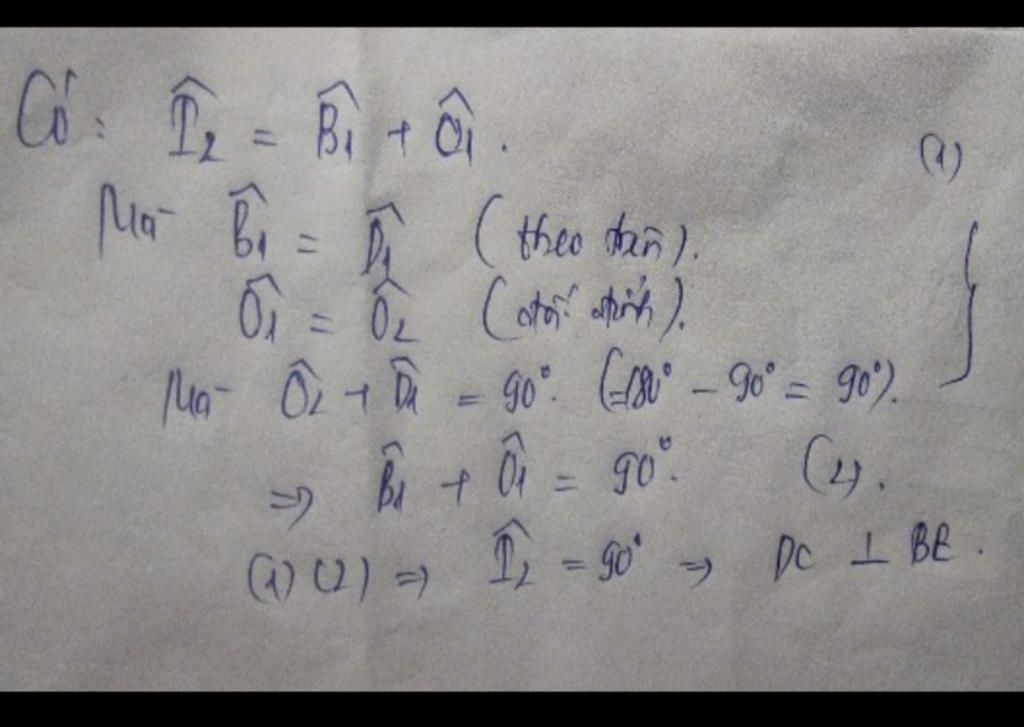 Có: Î₂ = B̂₁ + Ô₁. (1)
Mà B̂₁ = D̂₁ (theo trên).
Ô₁ = Ô₂ (đối đỉnh).
Mà Ô₂ + D̂₁ = 90°. (=180° - 90° = 90°).
=> B̂₁ + Ô₁ = 90°. (2).
(1) (2) => Î₂ = 90° => DC ⊥ BE.